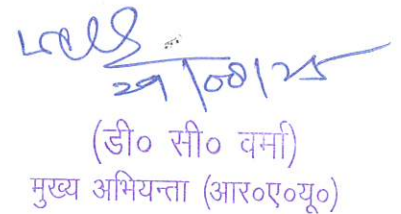 29/08/25
(डी० सी० वर्मा)
मुख्य अभियन्ता (आर०ए०यू०)